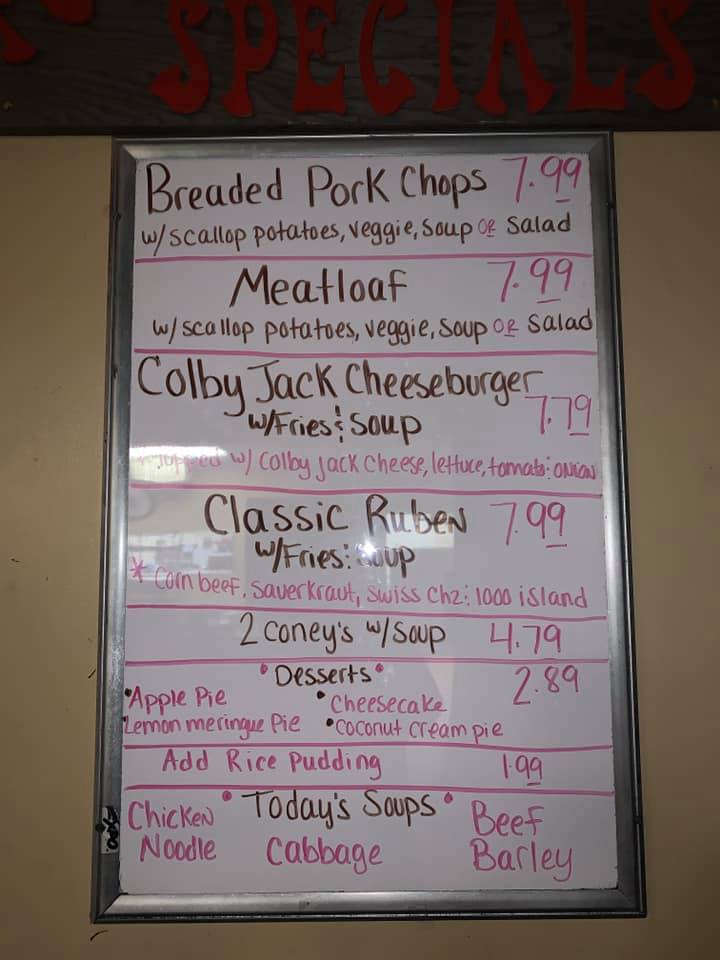 SPECIALS
Breaded Pork Chops 7.99
w/scallop potatoes, veggie, soup OR Salad
Meatloaf 7.99
w/scallop potatoes, veggie, soup OR Salad
Colby Jack Cheeseburger
w/Fries & Soup 7.79
*Topped w/ Colby Jack Cheese, lettuce, tomato & onion
Classic Ruben 7.99
w/Fries & Soup
* Corn beef, Sauerkraut, Swiss Chz & 1000 island
2 Coney's w/Soup 4.79
• Desserts • 2.89
•Apple Pie •Cheesecake
•Lemon meringue Pie •Coconut Cream pie
Add Rice Pudding 1.99
• Today's Soups •
Chicken Noodle
Cabbage
Beef Barley